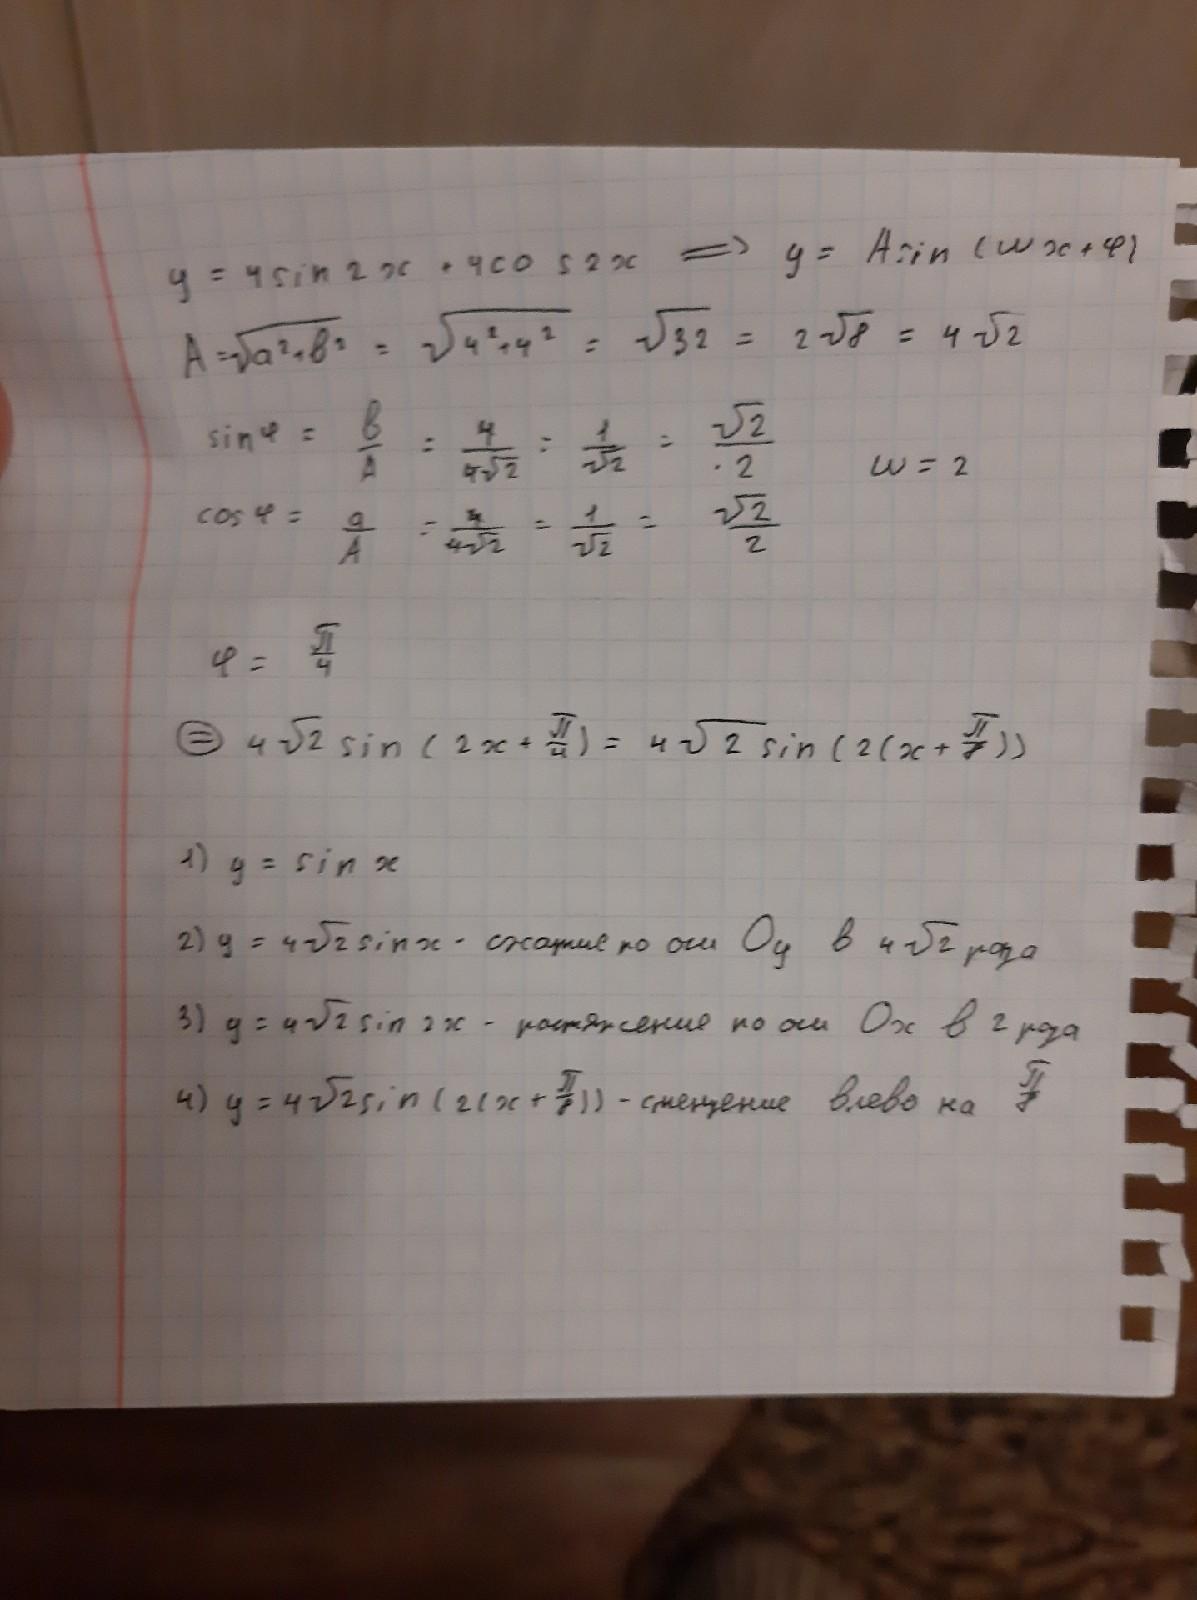 y = 4 sin 2x + 4 cos 2x => y = A sin (ωx + φ)
A = √(a² + b²) = √(4² + 4²) = √32 = 2√8 = 4√2
sin φ = b/A = 4/(4√2) = 1/√2 = √2/2
ω = 2
cos φ = a/A = 4/(4√2) = 1/√2 = √2/2
φ = π/4
⊜ 4√2 sin (2x + π/4) = 4√2 sin (2(x + π/8))
1) y = sin x
2) y = 4√2 sin x - сжатие по оси Oy в 4√2 раза
3) y = 4√2 sin 2x - растяжение по оси Ox в 2 раза
4) y = 4√2 sin (2(x + π/8)) - смещение влево на π/8